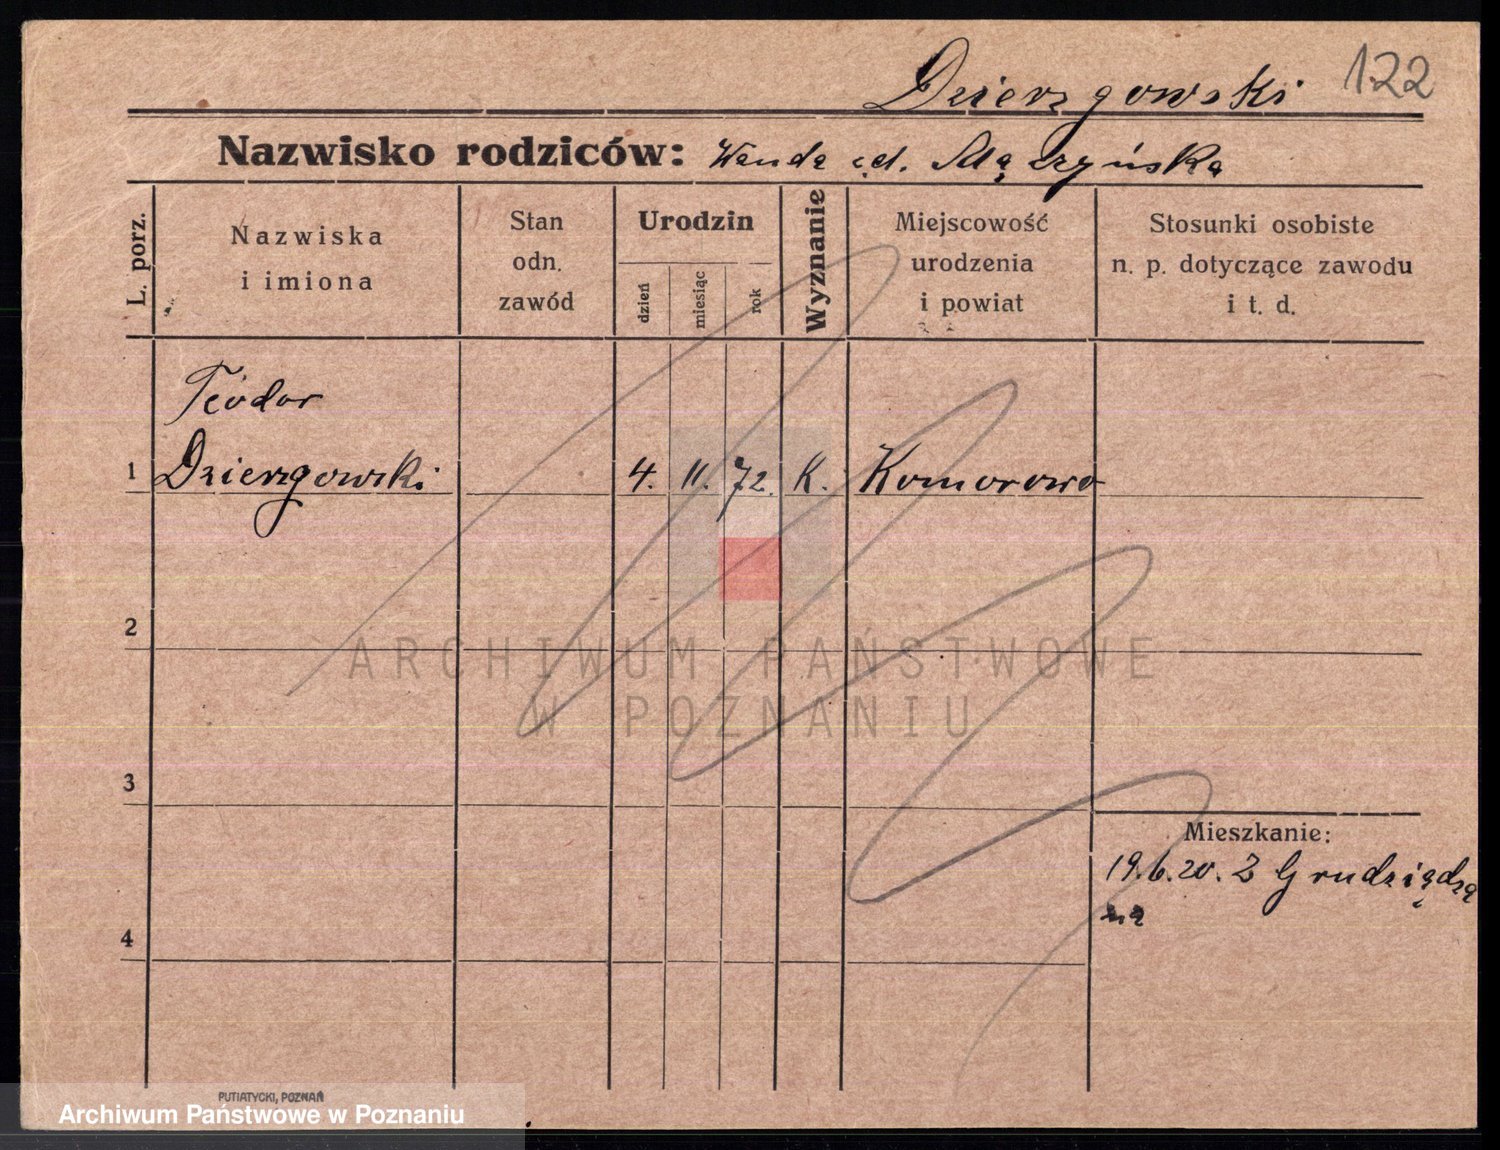 Dzierzgowski 122
Nazwisko rodziców: Wanda Mączyńska
L. porz.
Nazwiska
i imiona
Stan
odn.
zawód
Urodzin
dzień
miesiąc
rok
Wyznanie
Miejscowość
urodzenia
i powiat
Stosunki osobiste
n. p. dotyczące zawodu
i t. d.
Teodor
1 Dzierzgowski 4. 11. 72. K. Komorowo
2
3
4
Mieszkanie:
19.6.20. Z Grudziądza
ARCHIWUM PAŃSTWOWE
W POZNANIU
PUTIATYCKI, POZNAŃ
Archiwum Państwowe w Poznaniu